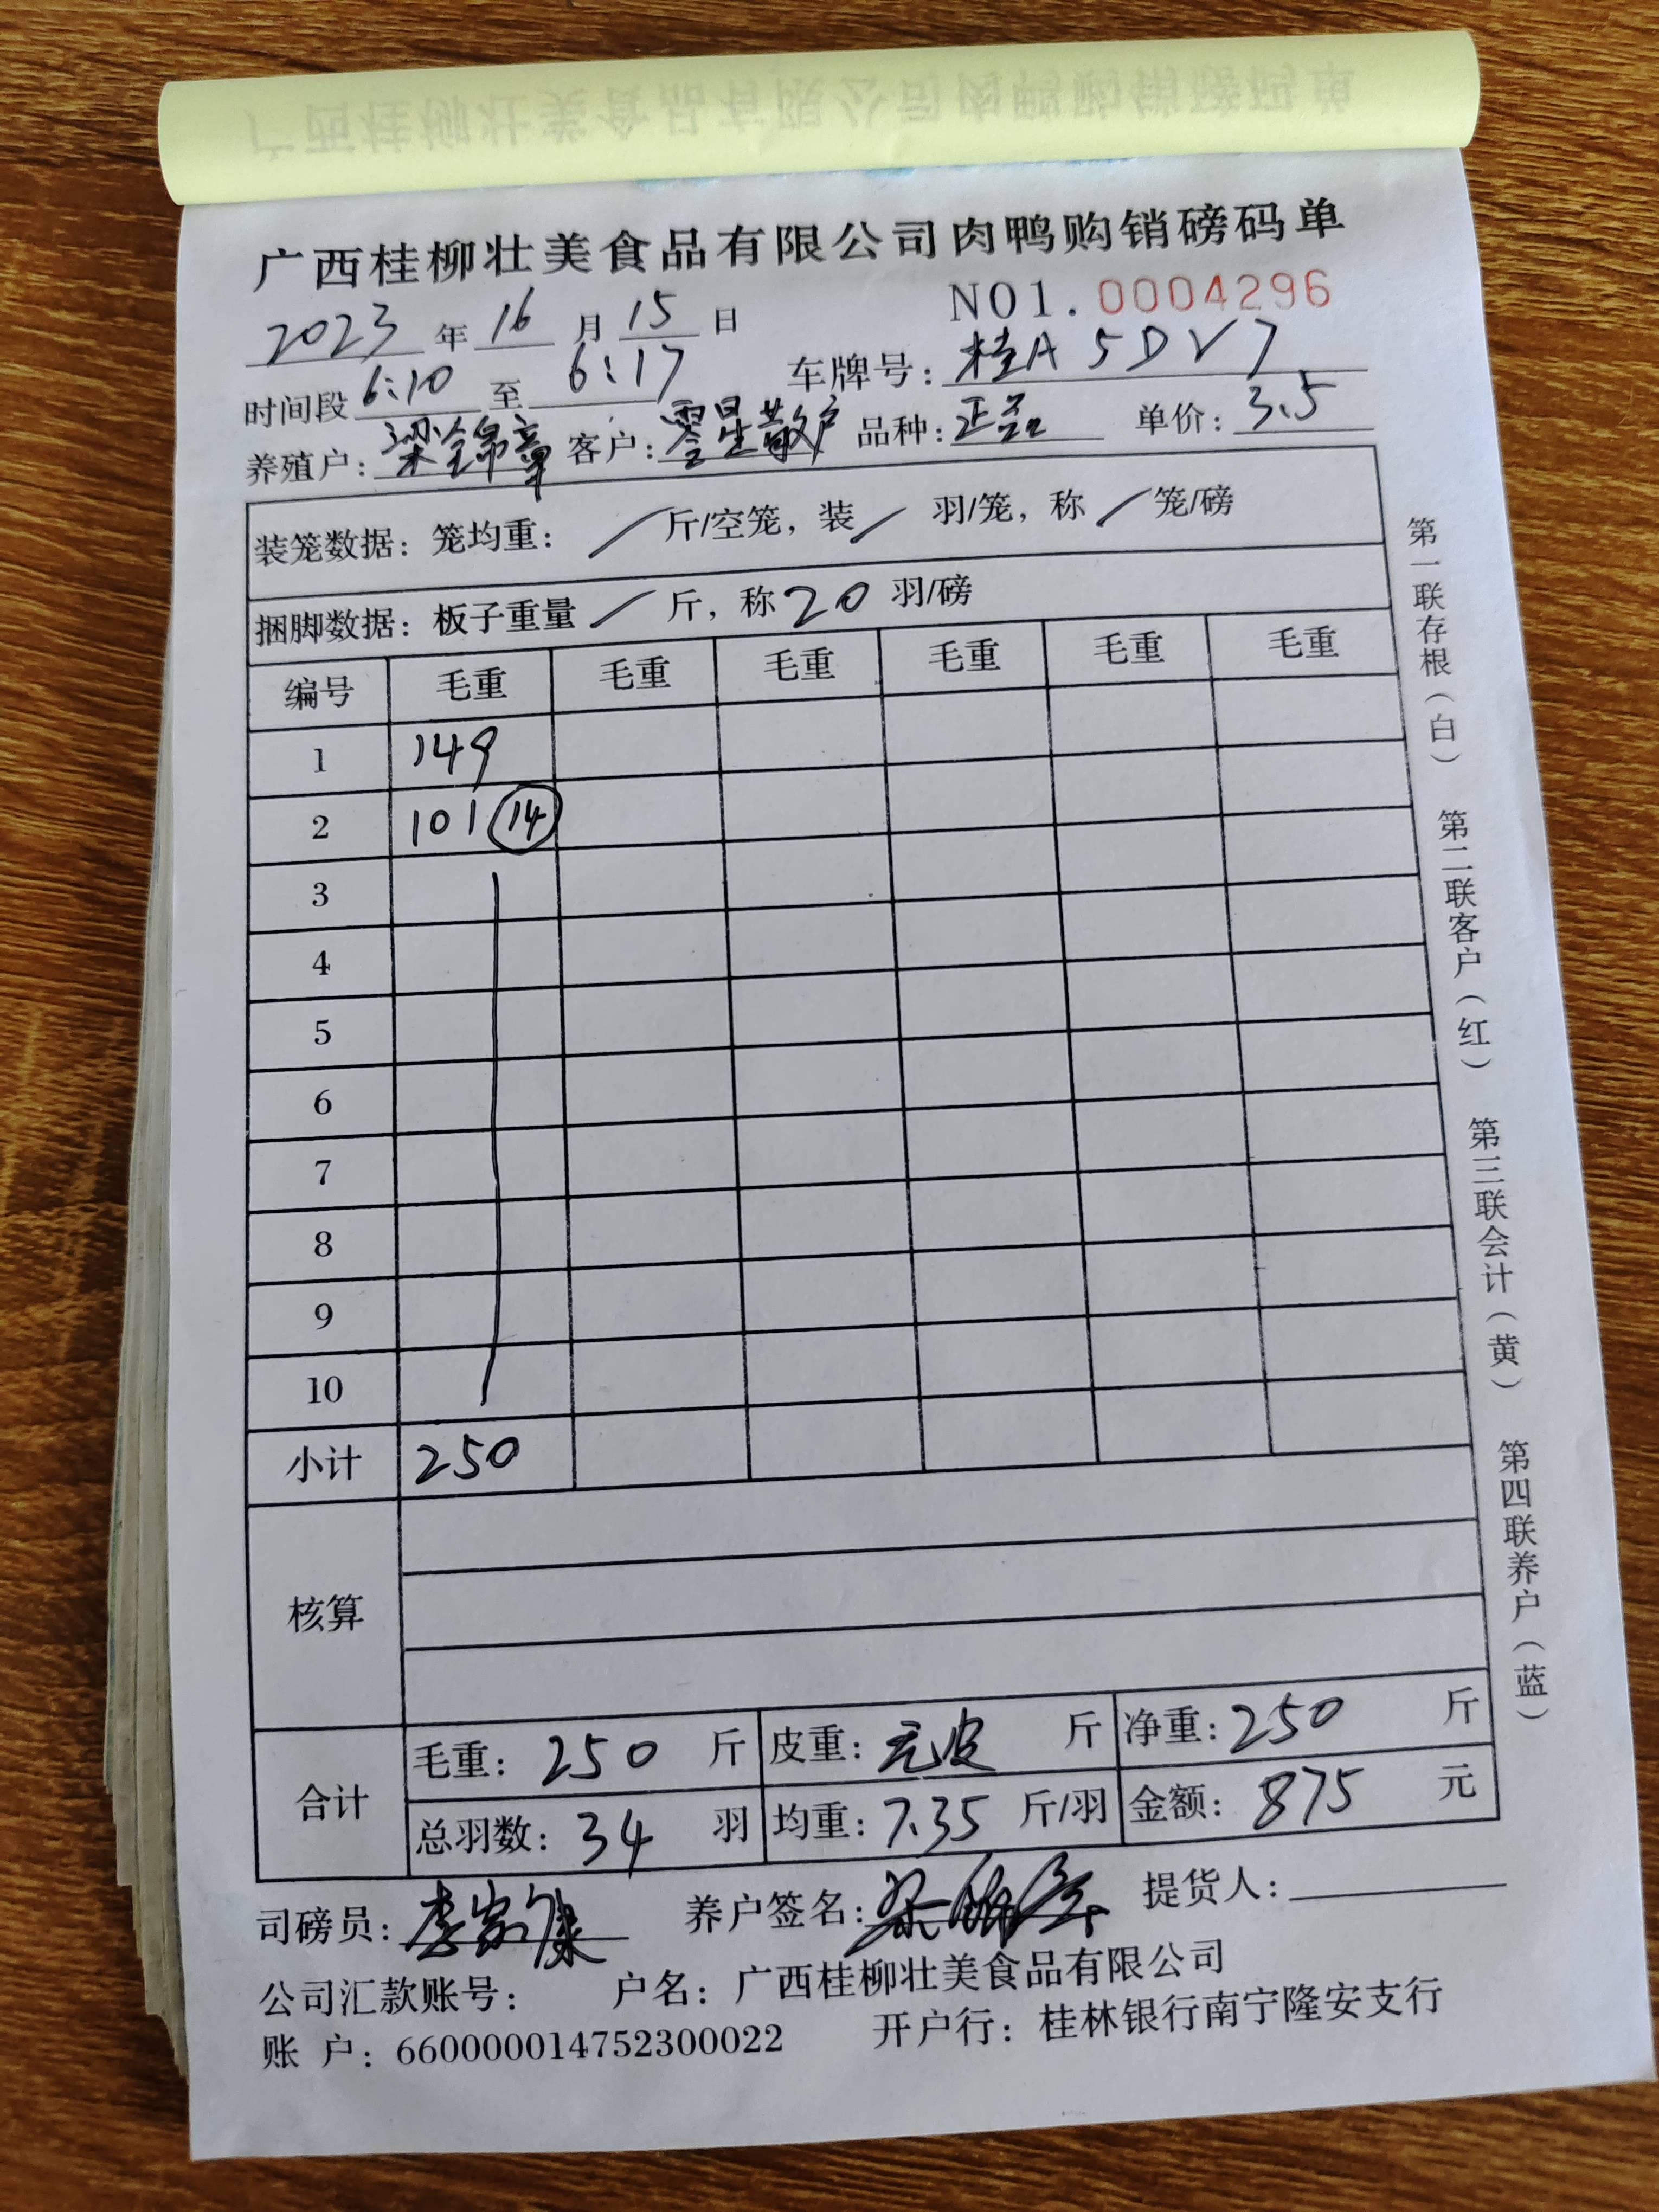 广西桂柳壮美食品有限公司肉鸭购销磅码单
NO1.0004296
2023年16月15日
时间段6:10至6:17 车牌号:桂A5DV7
养殖户:梁锦章 客户:零星散户 品种:正品 单价:3.5
装笼数据:笼均重:/斤/空笼,装/羽/笼,称/笼/磅
捆脚数据:板子重量/斤,称20羽/磅
编号 毛重 毛重 毛重 毛重 毛重 毛重
1 149
2 101 14
3
4
5
6
7
8
9
10
小计 250
核算
合计 毛重:250斤 皮重:无皮斤 净重:250斤
总羽数:34羽 均重:7.35斤/羽 金额:875元
司磅员:李家康 养户签名:梁锦章 提货人:
公司汇款账号: 户名:广西桂柳壮美食品有限公司
账 户:660000014752300022 开户行:桂林银行南宁隆安支行
第一联存根(白) 第二联客户(红) 第三联会计(黄) 第四联养户(蓝)